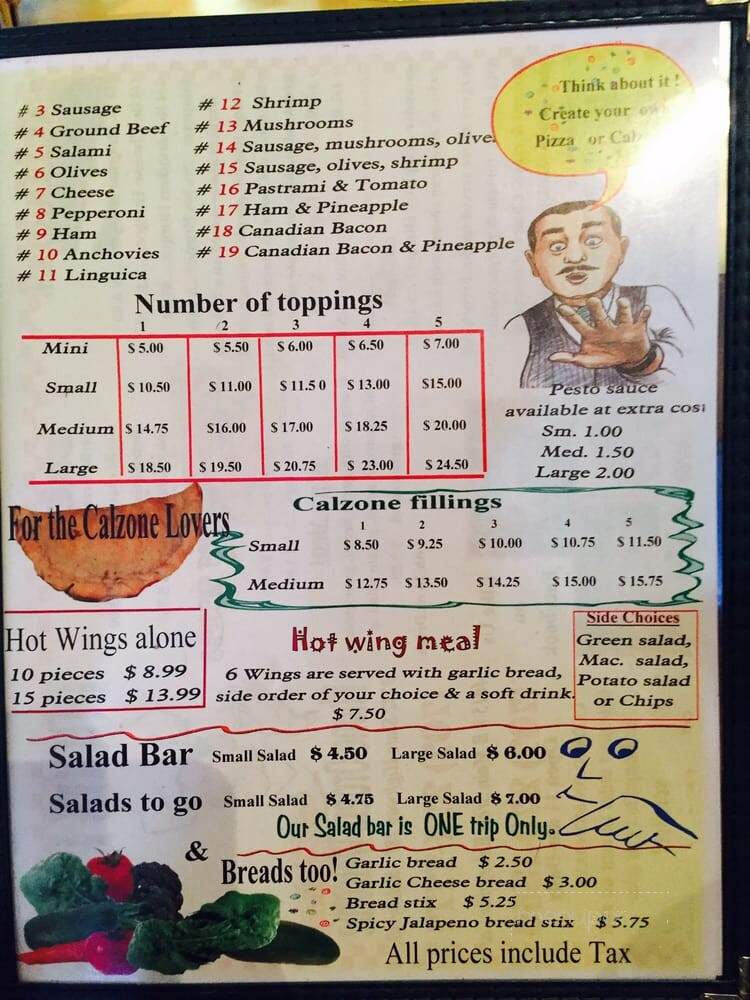 # 3 Sausage
# 4 Ground Beef
# 5 Salami
# 6 Olives
# 7 Cheese
# 8 Pepperoni
# 9 Ham
# 10 Anchovies
# 11 Linguica
# 12 Shrimp
# 13 Mushrooms
# 14 Sausage, mushrooms, olive
# 15 Sausage, olives, shrimp
# 16 Pastrami & Tomato
# 17 Ham & Pineapple
#18 Canadian Bacon
# 19 Canadian Bacon & Pineapple
Think about it !
Create your
Pizza or
Number of toppings
1 2 3 4 5
Mini $ 5.00 $ 5.50 $ 6.00 $ 6.50 $ 7.00
Small $ 10.50 $ 11.00 $ 11.5 0 $ 13.00 $15.00
Medium $ 14.75 $16.00 $ 17.00 $ 18.25 $ 20.00
Large $ 18.50 $ 19.50 $ 20.75 $ 23.00 $ 24.50
Pesto sauce
available at extra cost
Sm. 1.00
Med. 1.50
Large 2.00
For the Calzone Lovers
Calzone fillings
1 2 3 4 5
Small $ 8.50 $ 9.25 $ 10.00 $ 10.75 $ 11.50
Medium $ 12.75 $ 13.50 $ 14.25 $ 15.00 $ 15.75
Hot Wings alone
10 pieces $ 8.99
15 pieces $ 13.99
Hot wing meal
6 Wings are served with garlic bread,
side order of your choice & a soft drink.
$ 7.50
Side Choices
Green salad,
Mac. salad,
Potato salad
or Chips
Salad Bar Small Salad $ 4.50 Large Salad $ 6.00
Salads to go Small Salad $ 4.75 Large Salad $ 7.00
Our Salad bar is ONE trip Only.
&
Breads too!
Garlic bread $ 2.50
Garlic Cheese bread $ 3.00
Bread stix $ 5.25
Spicy Jalapeno bread stix $ 5.75
All prices include Tax